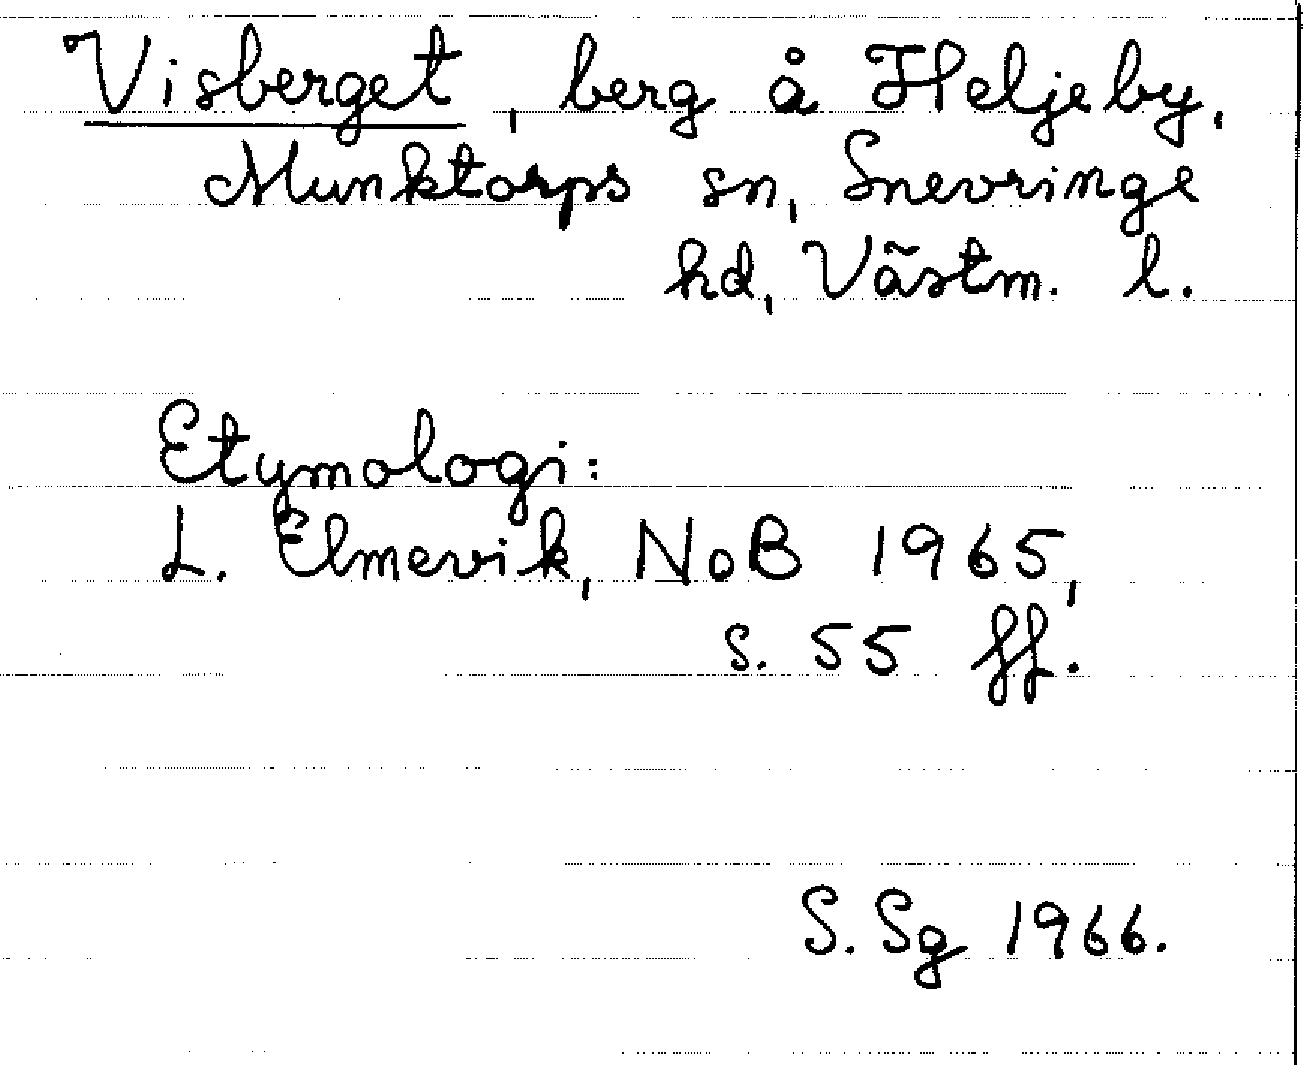 Visberget, berg å Heljeby,
Munktorps sn, Snevringe
hd, Västm. l.
Etymologi:
L. Elmevik, NoB 1965,
s. 55 ff.
S. Sg 1966.